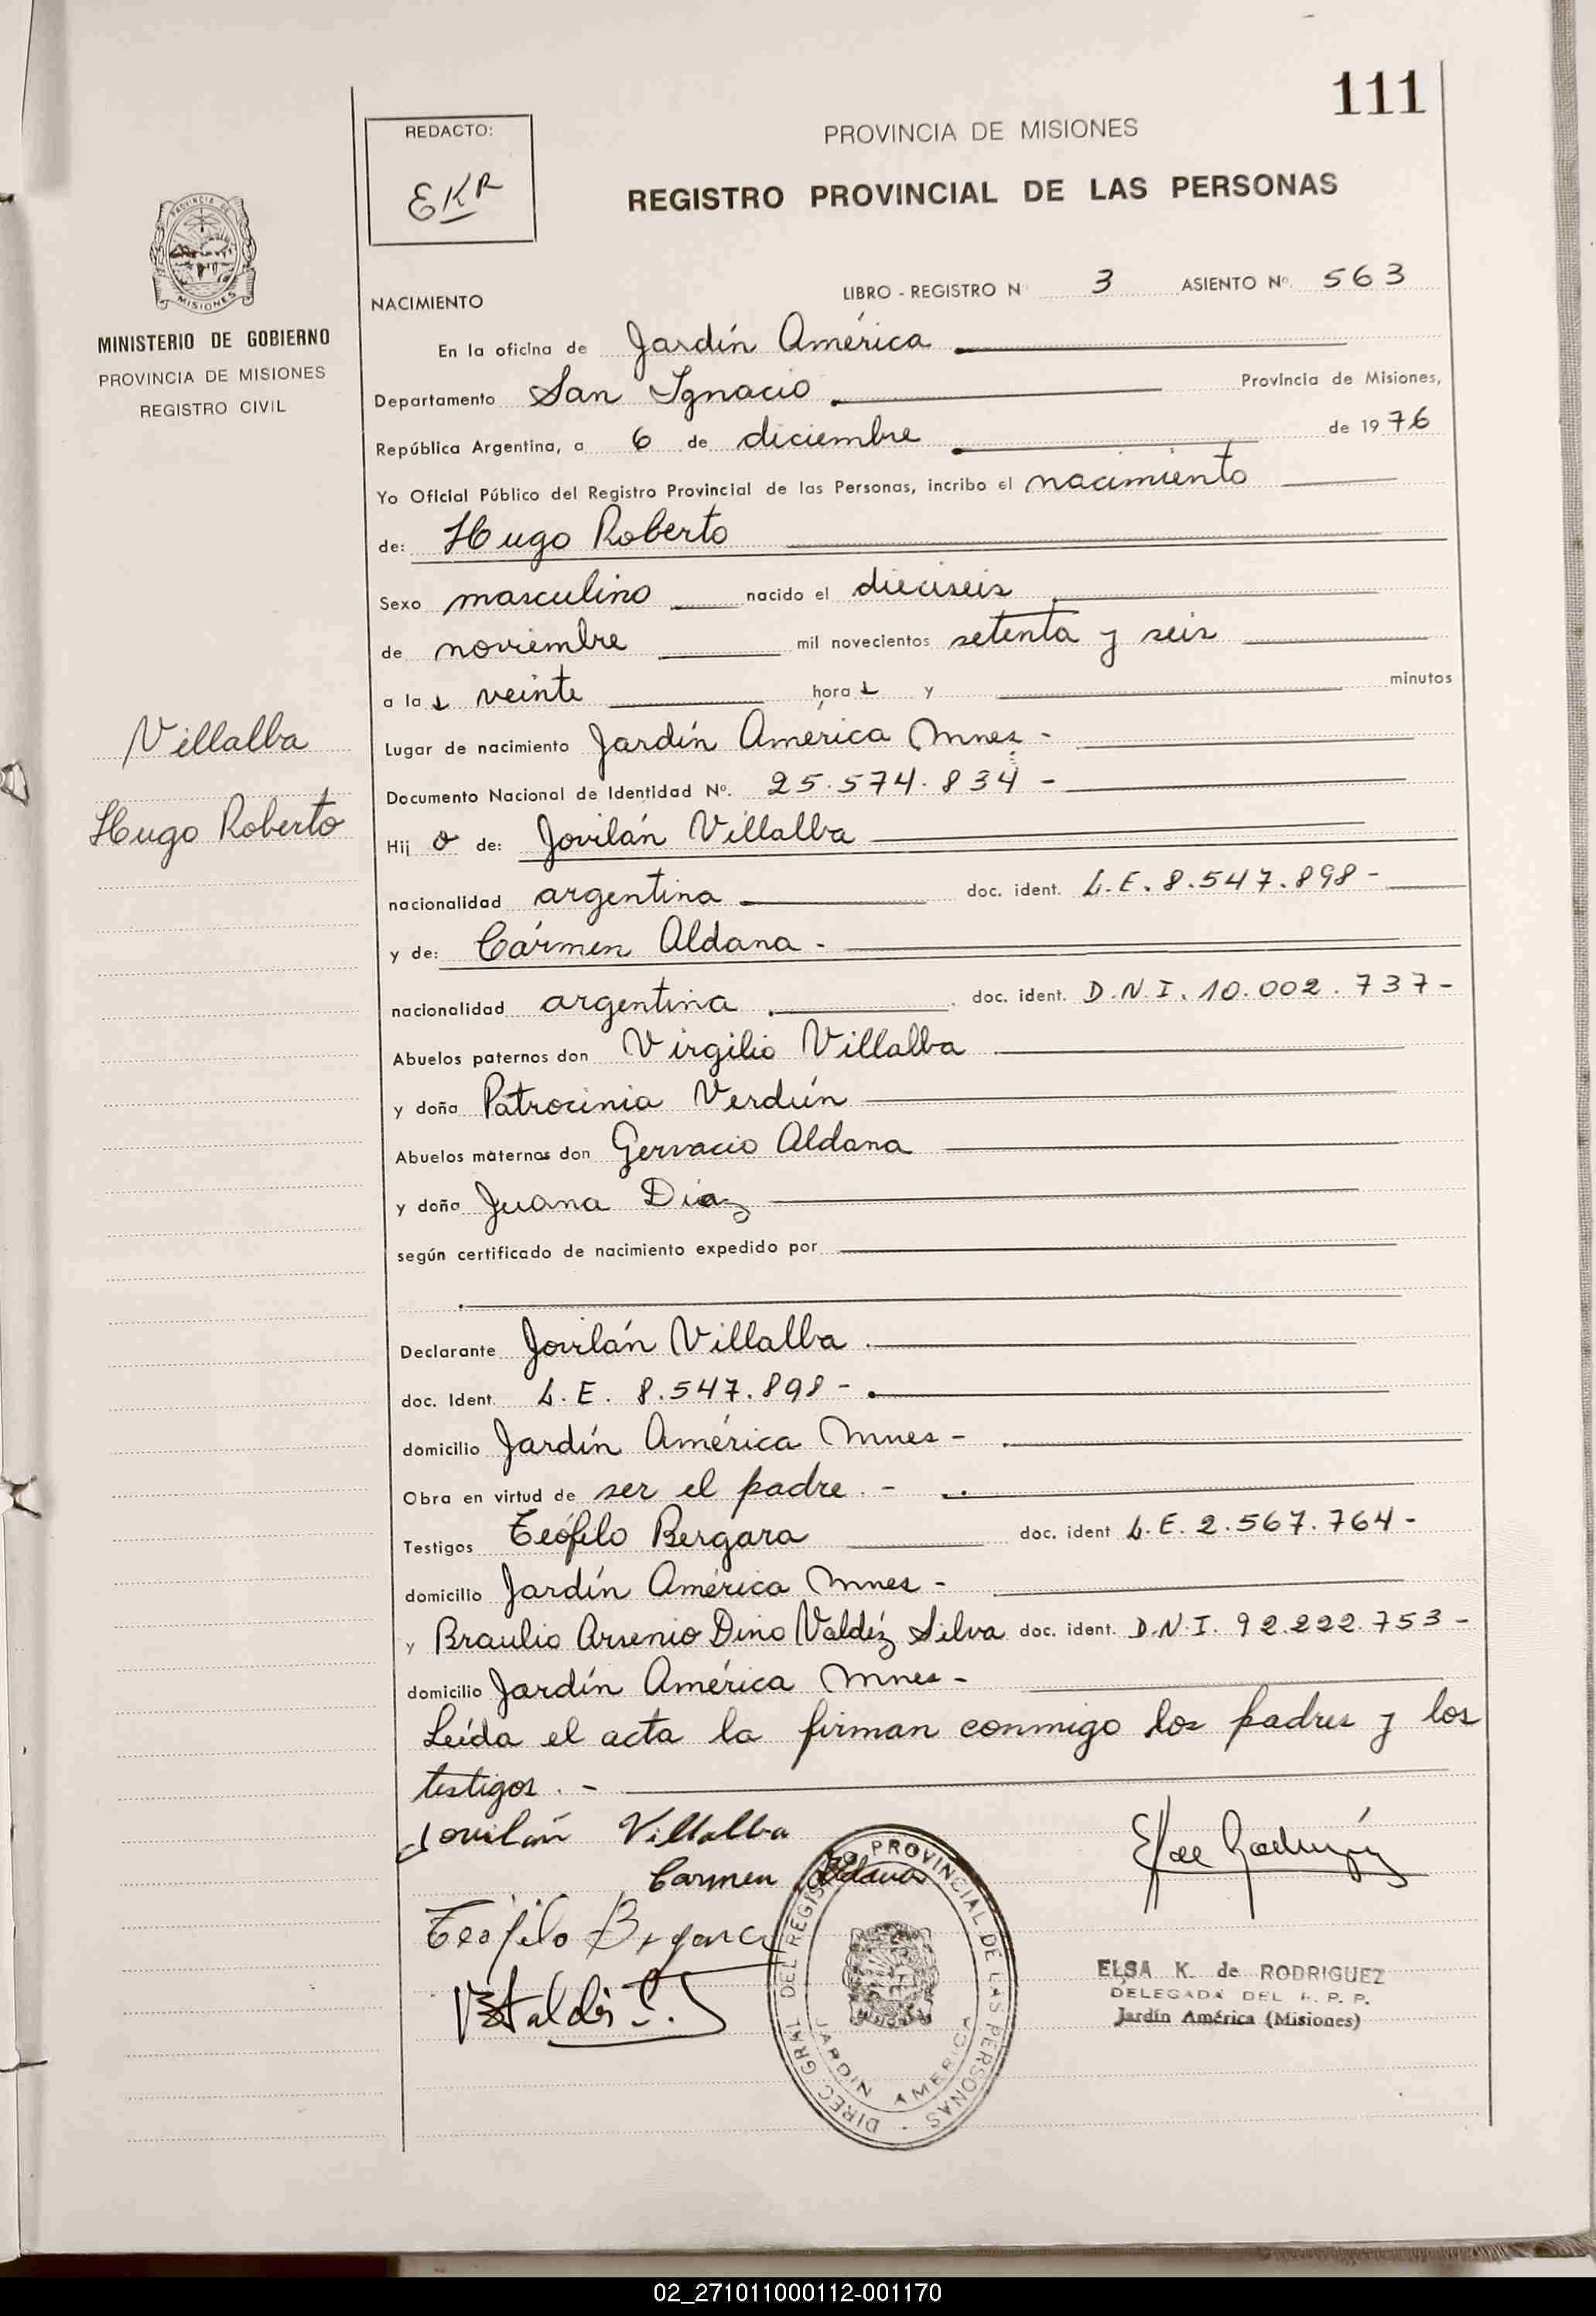 111
REDACTO:
EKR
PROVINCIA DE MISIONES
REGISTRO PROVINCIAL DE LAS PERSONAS
PROVINCIA DE
MISIONES
MINISTERIO DE GOBIERNO
PROVINCIA DE MISIONES
REGISTRO CIVIL
NACIMIENTO
LIBRO - REGISTRO Nº 3 ASIENTO Nº. 563
En la oficina de Jardín América
Departamento San Ignacio Provincia de Misiones,
República Argentina, a 6 de diciembre de 1976
Yo Oficial Público del Registro Provincial de las Personas, incribo el nacimiento
de: Hugo Roberto
Sexo masculino nacido el dieciseis
de noviembre mil novecientos setenta y seis
a la s veinte hora s y minutos
Villalba
Hugo Roberto
Lugar de nacimiento Jardín América Mnes -
Documento Nacional de Identidad Nº. 25.574.834 -
Hij o de: Jovilán Villalba
nacionalidad argentina doc. ident. L.E. 8.547.898 -
y de: Cármen Aldana -
nacionalidad argentina doc. ident. D.N.I. 10.002.737 -
Abuelos paternos don Virgilio Villalba
y doña Patrocinia Verdún
Abuelos maternos don Gervacio Aldana
y doña Juana Díaz
según certificado de nacimiento expedido por
Declarante Jovilán Villalba .
doc. Ident. L.E. 8.547.898 -
domicilio Jardín América Mnes -
Obra en virtud de ser el padre . -
Testigos Teófilo Bergara doc. ident L.E. 2.567.764 -
domicilio Jardín América Mnes -
y Braulio Arsenio Dino Valdéz Silva doc. ident. D.N.I. 92.222.753 -
domicilio Jardín América Mnes -
Leída el acta la firman conmigo los padres y los
testigos . -
Jovilán Villalba
Carmen Aldana
Teófilo Bergara
DIREC. GRAL. DEL REGISTRO PROVINCIAL DE LAS PERSONAS
JARDIN AMERICA
ELSA K. de RODRIGUEZ
DELEGADA DEL R. P. P.
Jardín América (Misiones)
02_271011000112-001170